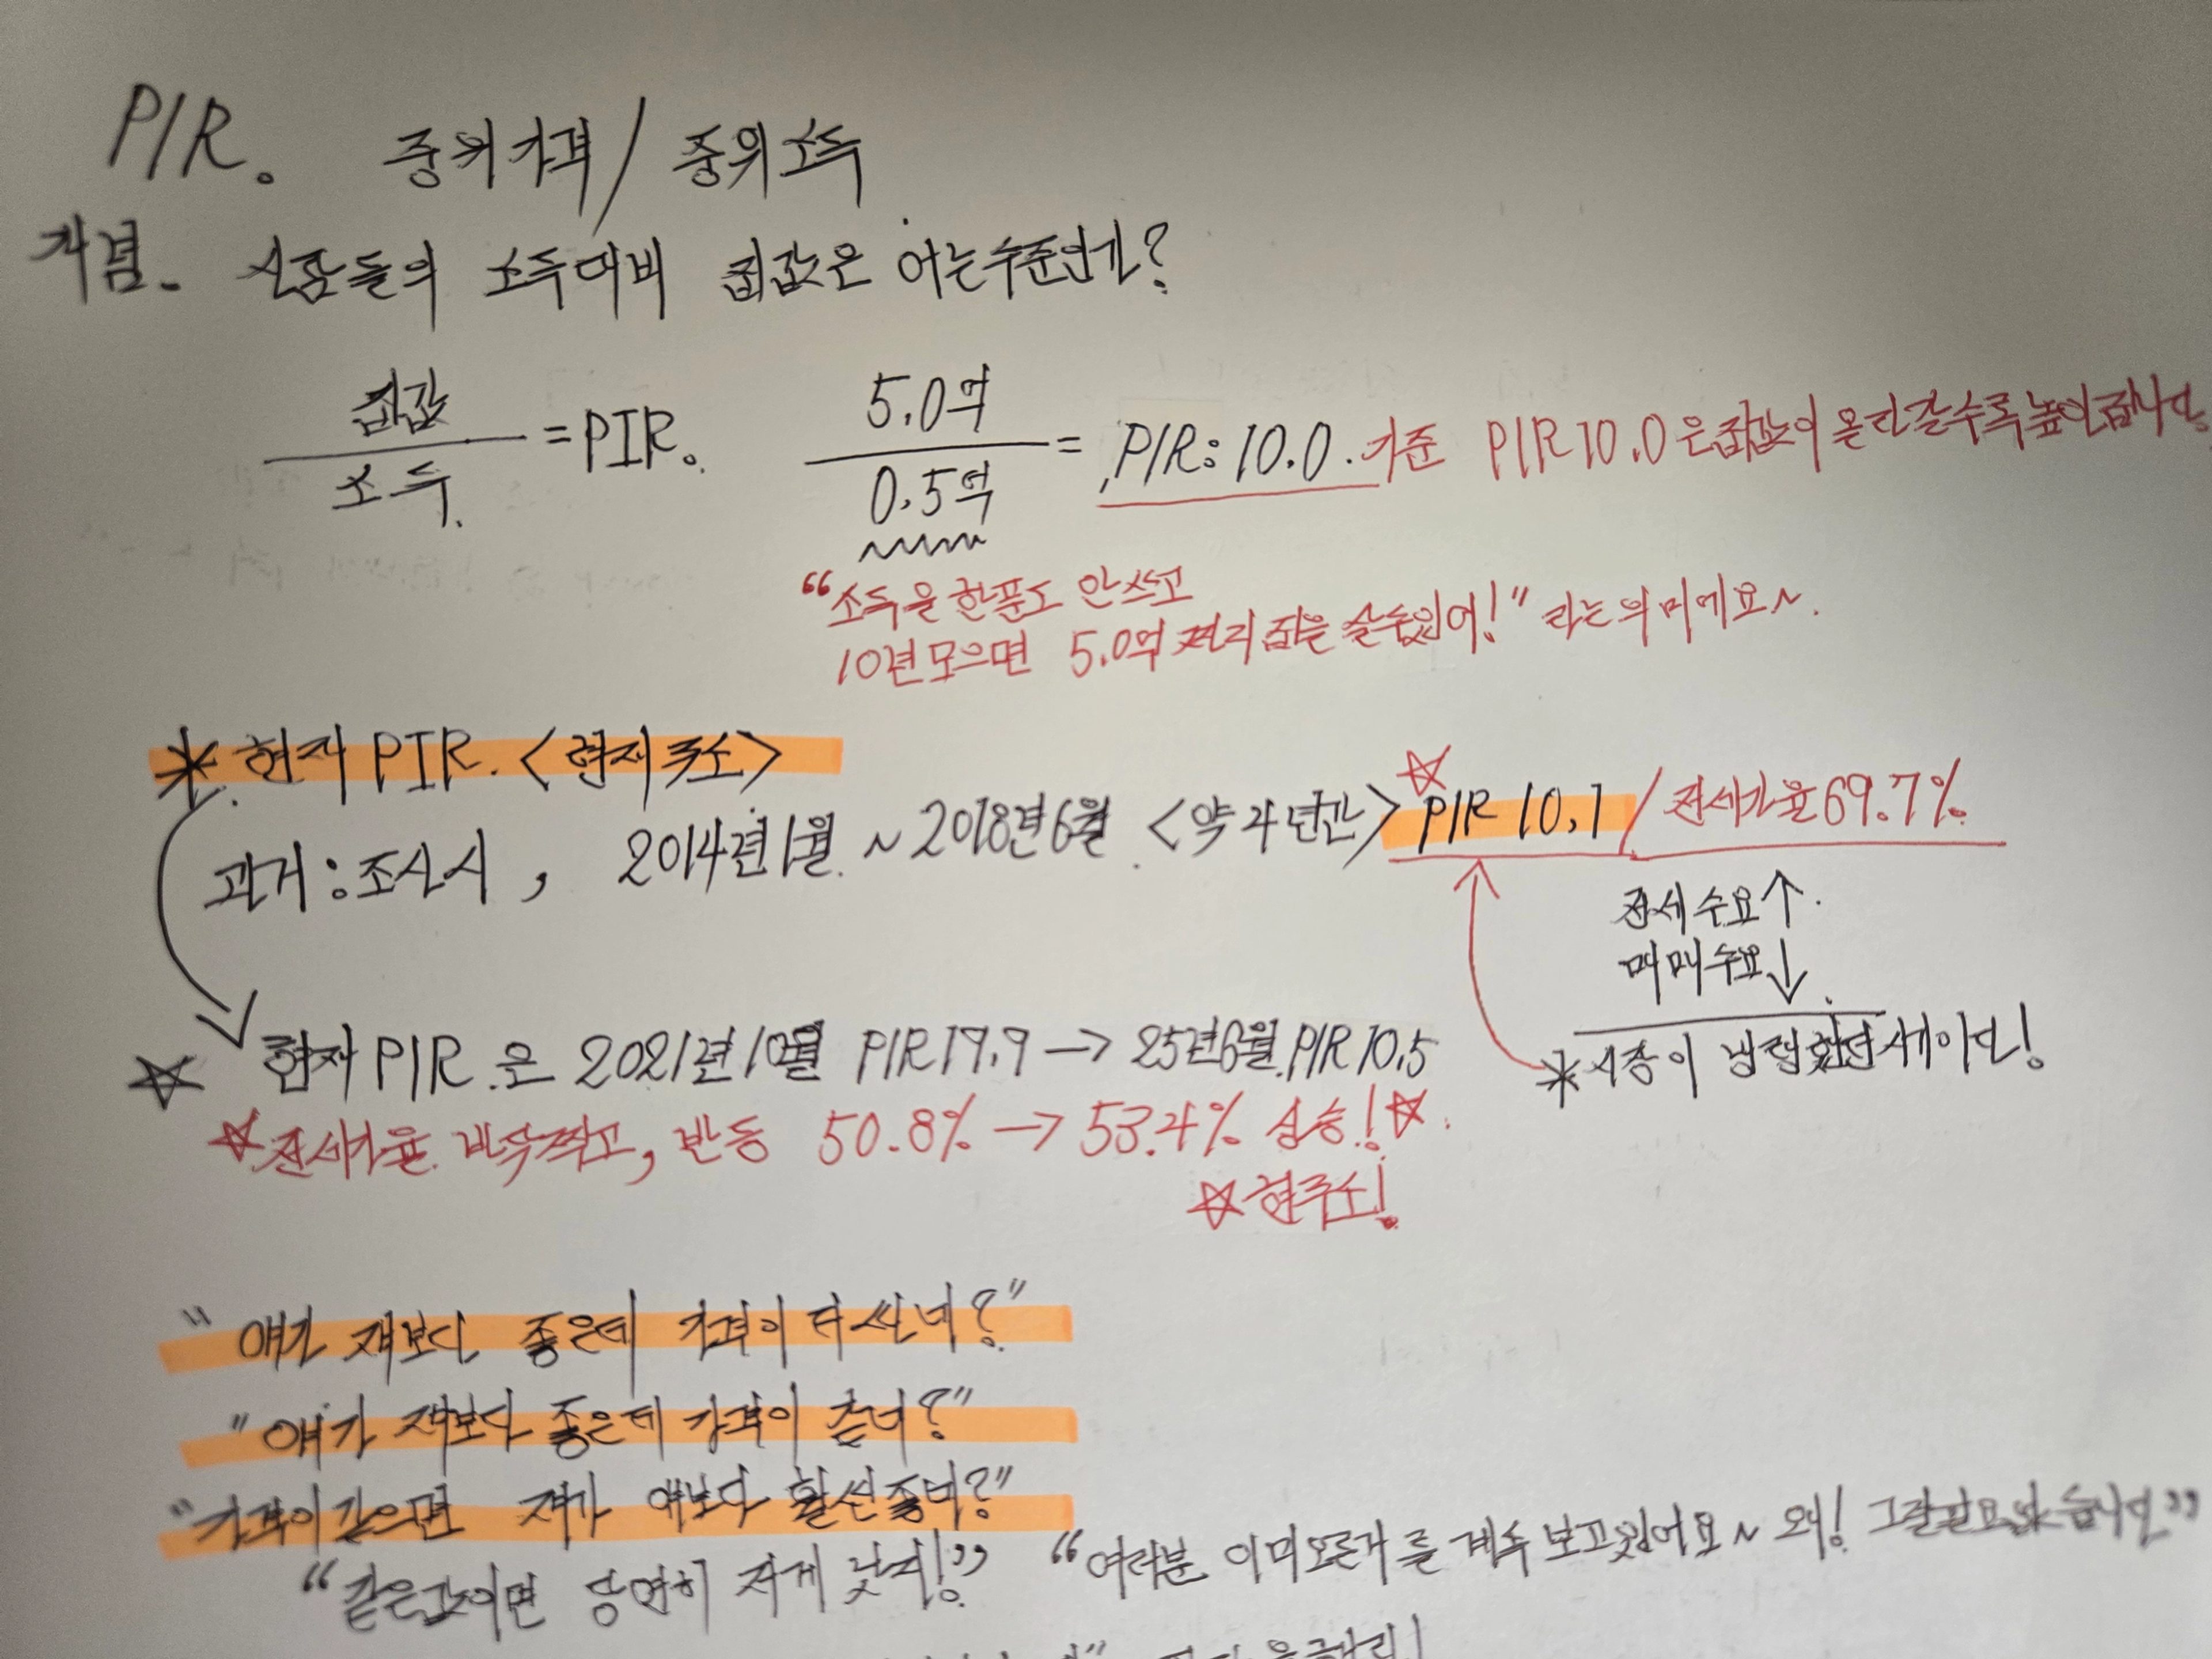 PIR. 중위가격/중위소득
개념. 사람들의 소득대비 집값은 어느수준인가?
집값
소득.
=PIR.
5.0억
0.5억
= PIR: 10.0. 기준 PIR 10.0은 집값이 올라갈수록 높아집니다.
"소득을 한푼도 안쓰고
10년모으면 5.0억 짜리 집을 살수있어!" 라는의미에요~.
* 현재 PIR. <현재주소>
과거:조사시, 2014년1월.~2018년6월.<약4년간> ☆PIR 10.1/전세가율69.7%
전세수요↑.
매매수요↓.
*시장이 냉랭했던시세이다!
☆ 현재PIR.은 2021년10월 PIR17.9→25년6월.PIR10.5
☆전세가율. 바닥찍고, 반등 50.8%→53.4% 상승!☆.
☆현주소!
"얘가 쟤보다 좋은데 가격이 더싸네?"
"얘가 쟤보다 좋은데 가격이 같네?"
"가격이같으면 쟤가 얘보다 훨씬좋네?"
"같은값이면 당연히 저게 낫지!" "여러분 이미오른거를 계속 보고있어요~ 왜! 그럴필요없습니다"